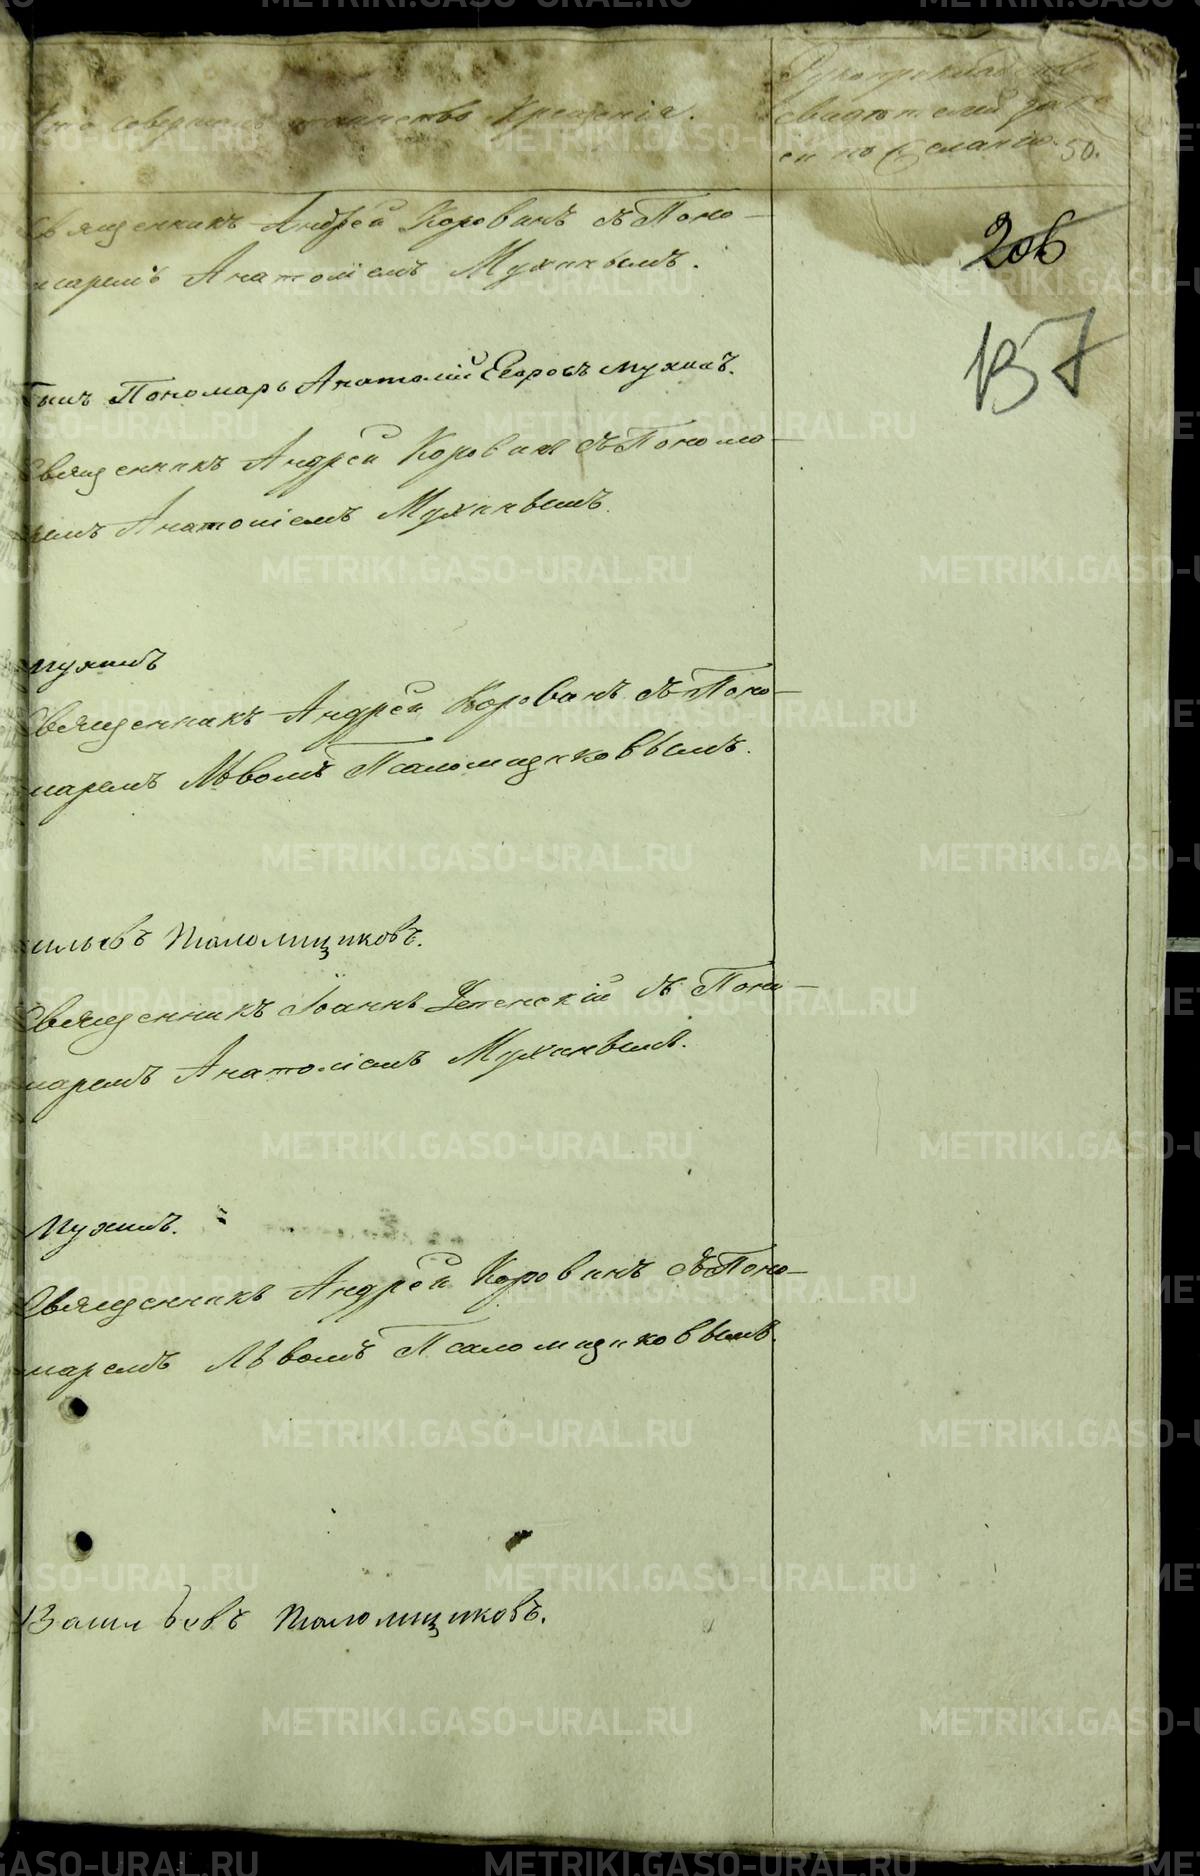 Кто совершалъ таинство Крещенія.
Рукоприкладство
свидѣтелей записи
по желанію.
50.
206
137
Священникъ Андрей Коровинъ съ Поно-
маремъ Анатоліемъ Мухинымъ.
Пономарь Анатолій Егоровъ Мухинъ.
Священникъ Андрей Коровинъ съ Понома-
ремъ Анатоліемъ Мухинымъ.
Мухинъ
Священникъ Андрей Коровинъ съ Поно-
маремъ Львомъ Псаломщиковымъ.
сильевъ Псаломщиковъ.
Священникъ Іоаннъ Успенскій съ Поно-
маремъ Анатоліемъ Мухинымъ.
Мухинъ.
Священникъ Андрей Коровинъ съ Поно-
маремъ Львомъ Псаломщиковымъ.
Васильевъ Псаломщиковъ.
METRIKI.GASO-URAL.RU